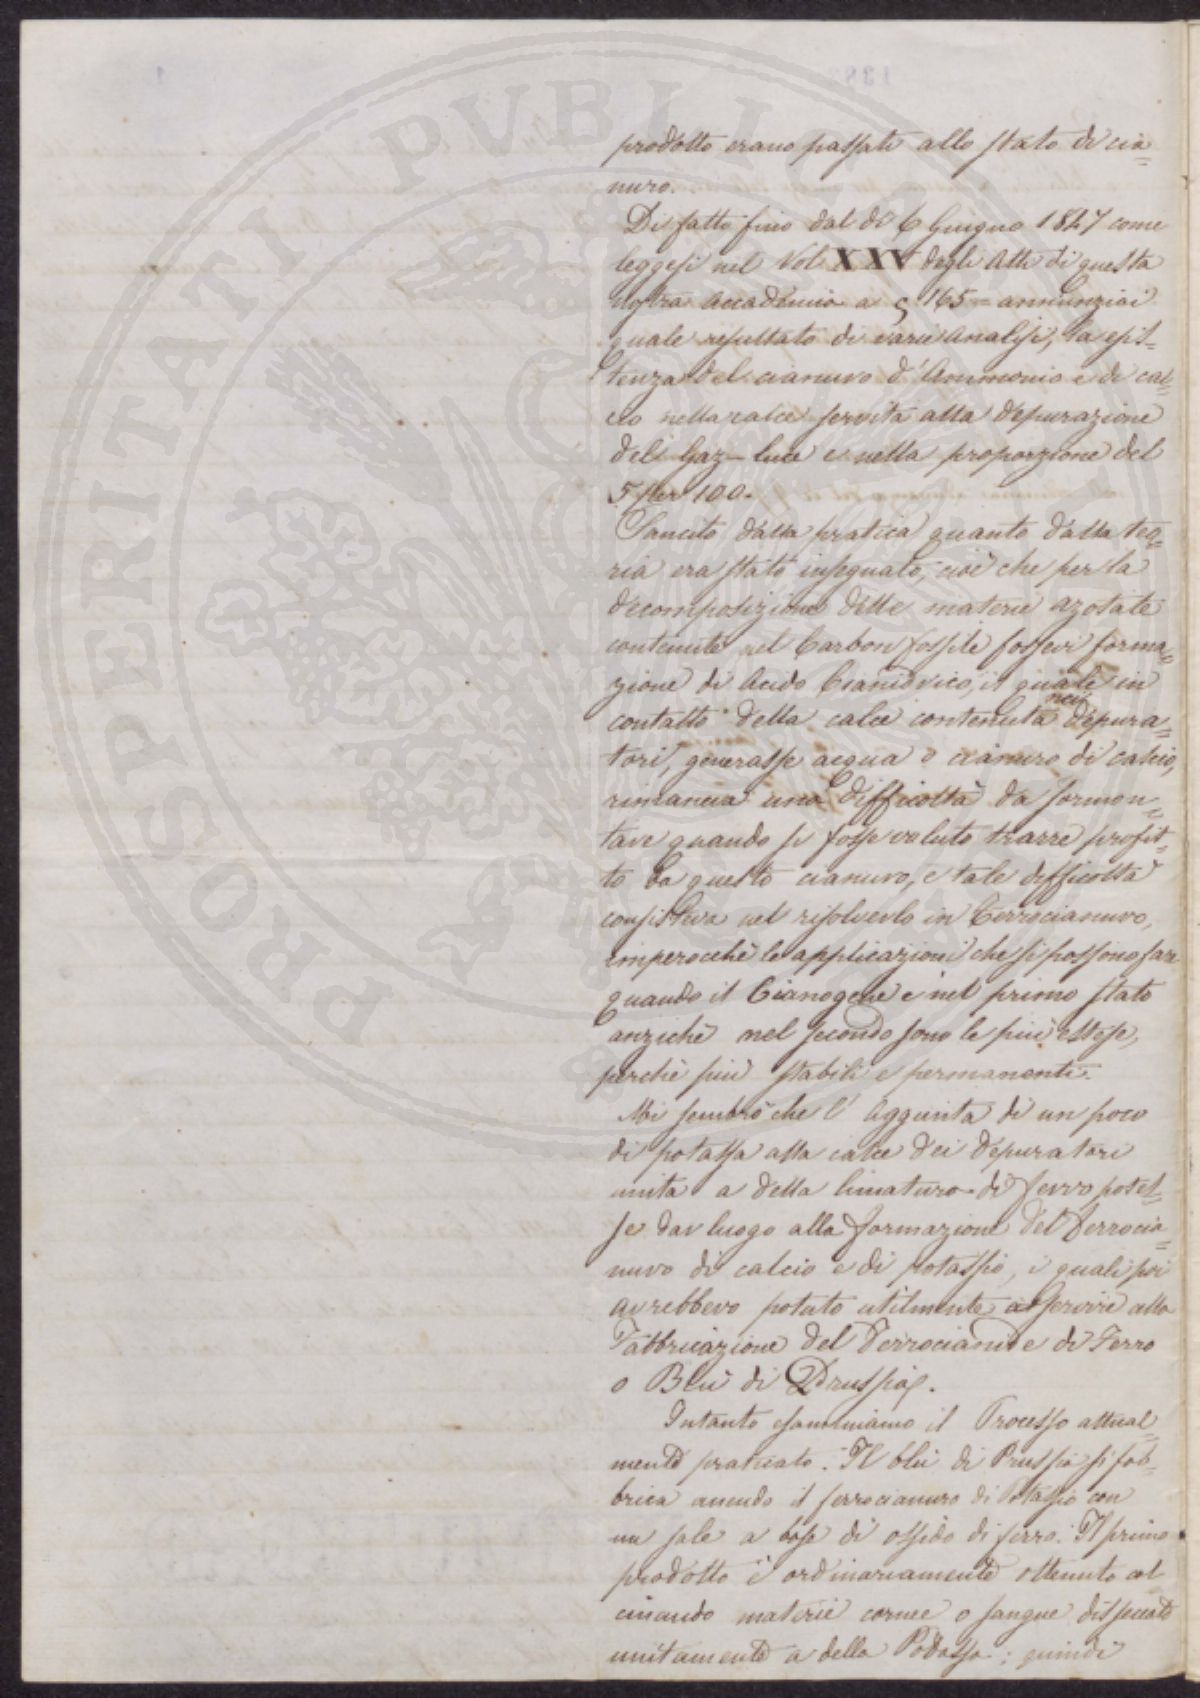 PROSPERITATI PVBLICAE
prodotto erano passati allo stato di cia=
nuro.
Di fatto fino dal dì 6 Giugno 1847 come
leggesi nel Vol XXV degli Atti di questa
nostra Accademia a 165 = annunziai
quale resultato di varie analisi, la esis=
tenza del cianuro d'Ammonio e di cal=
cio nella calce servita alla depurazione
del Gaz-luce e nella proporzione del
5 per 100.
Sancito dalla pratica quanto dalla teo=
ria era stato insegnato, cioè che per la
decomposizione delle materie azotate
contenute nel Carbon fossile fossevi forma=
zione di Acido Cianidrico, il quale in
contatto della calce contenuta nei depura=
tori, generasse acqua e cianuro di calcio,
rimaneva una difficoltà da sormon=
tare quando si fosse voluto trarre profit=
to da questo cianuro, e tale difficoltà
consisteva nel risolverlo in Ferrocianuro,
imperocchè le applicazioni che si possono fare
quando il Cianogene è nel primo stato
anzichè nel secondo sono le più estese,
perchè più stabili e permanenti.
Mi sembrò che l'Aggiunta di un poco
di potassa alla calce dei depuratori
unita a della limatura di ferro potes=
se dar luogo alla formazione del Ferrocia=
nuro di calcio e di potassio, i quali poi
avrebbero potuto utilmente servire alla
Fabbricazione del Ferrocianuro di Ferro
o Blù di Prussia.
Intanto esaminiamo il Processo attual=
mente praticato. Il blù di Prussia si fab=
brica unendo il ferrocianuro di Potassio con
un sale a base di ossido di ferro. Il primo
prodotto è ordinariamente ottenuto cal
cinando materie cornee o sangue disseccato
unitamente a della Potassa; quindi